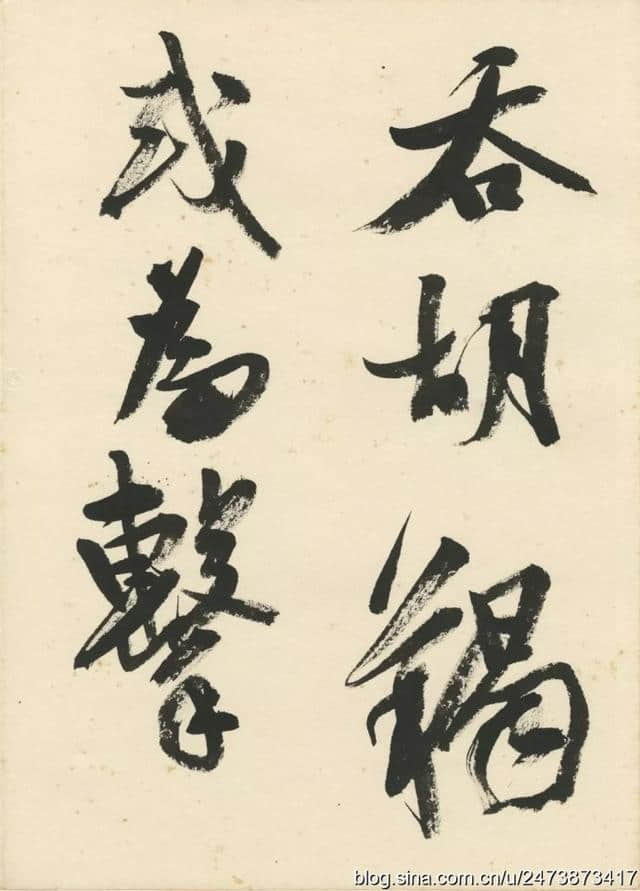 吞胡羯
或為擊
blog.sina.com.cn/u/2473873417